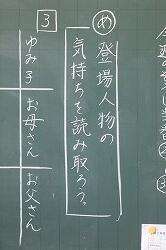 め
登場人物の
気持ちを読み取ろう。
3
ゆみ子
お母さん
お父さん